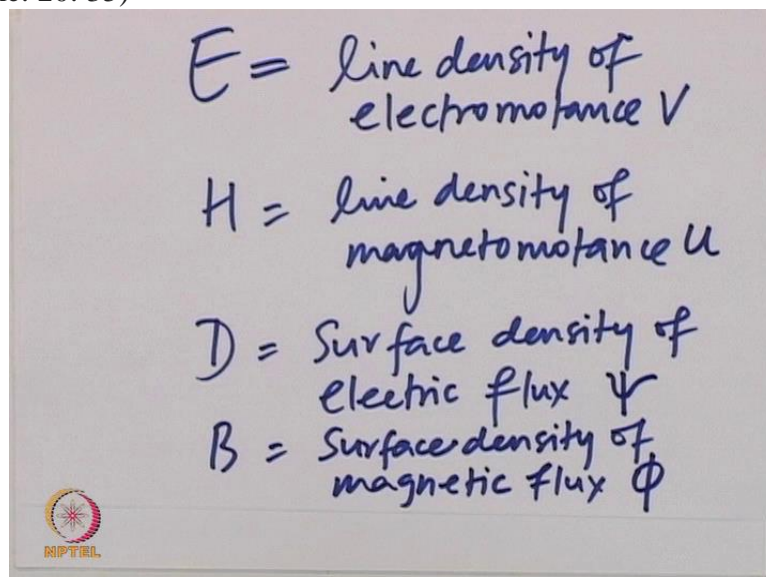 E = line density of
electromotance V
H = line density of
magnetomotance U
D = Surface density of
electric flux Ψ
B = Surface density of
magnetic flux Φ
NPTEL